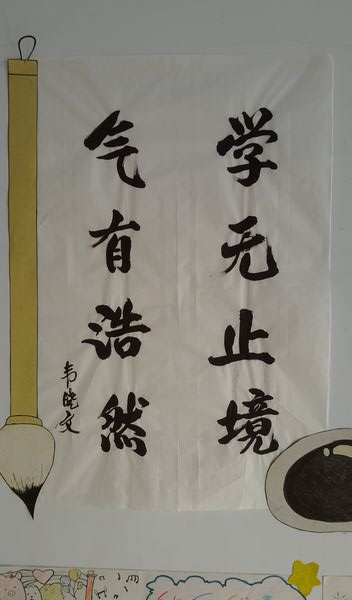 学无止境
气有浩然
韦晓文